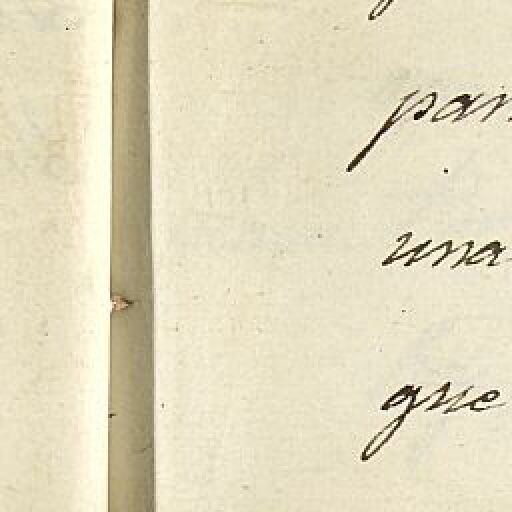 par
una
gue